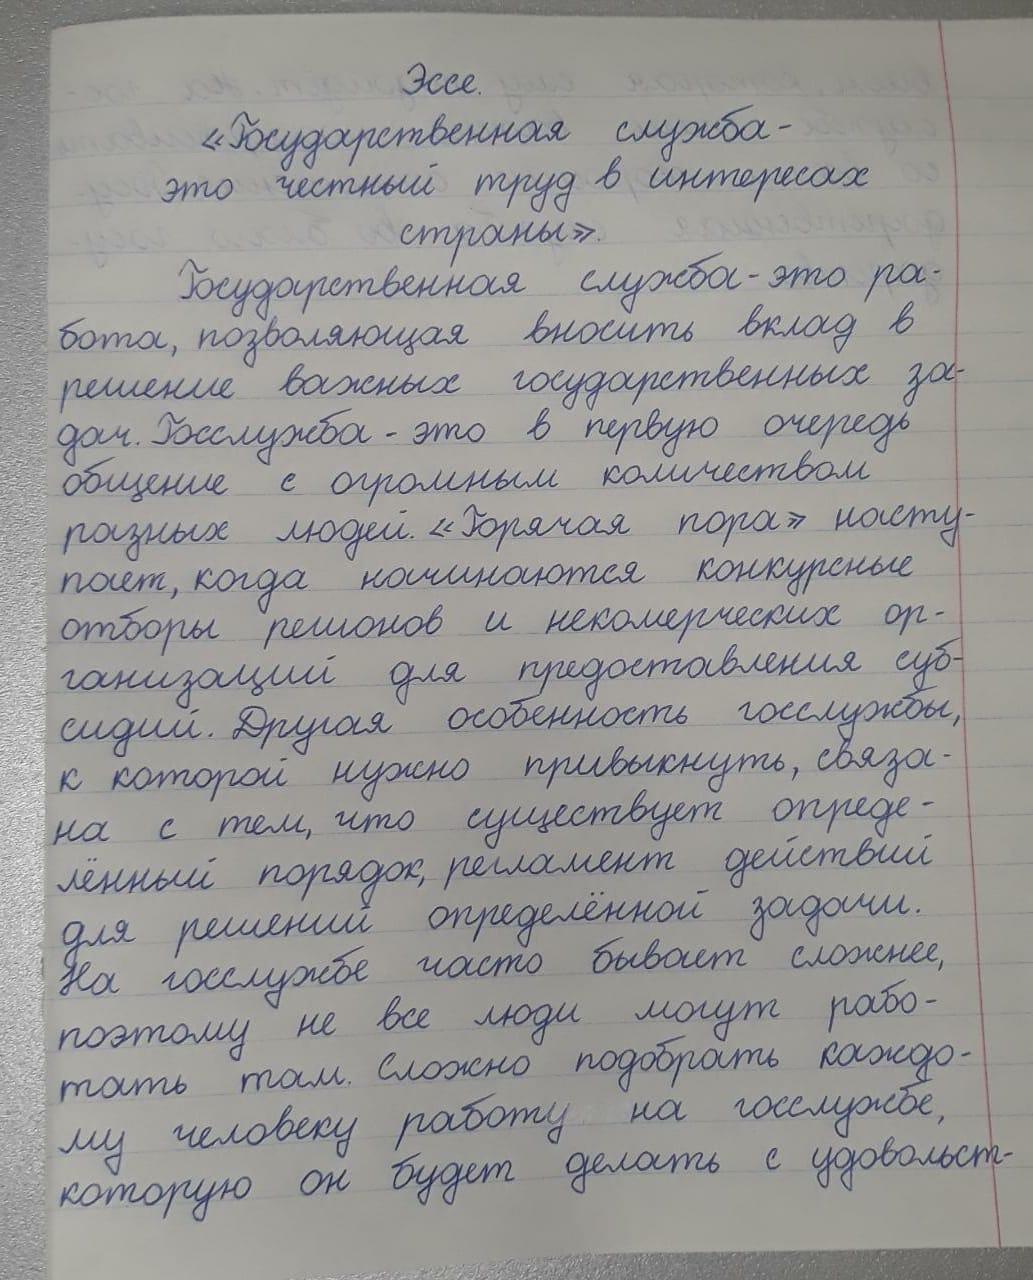 Эссе.
«Государственная служба-
это честный труд в интересах
страны».
Государственная служба-это ра-
бота, позволяющая вносить вклад в
решение важных государственных за-
дач. Госслужба-это в первую очередь
общение с огромным количеством
разных людей. «Горячая пора» насту-
пает, когда начинаются конкурсные
отборы регионов и некомерческих ор-
ганизаций для предоставления суб-
сидий. Другая особенность госслужбы,
к которой нужно привыкнуть, связа-
на с тем, что существует опреде-
лённый порядок, регламент действий
для решений определённой задачи.
На госслужбе часто бывает сложнее,
поэтому не все люди могут рабо-
тать там. Сложно подобрать каждо-
му человеку работу на госслужбе,
которую он будет делать с удовольст-